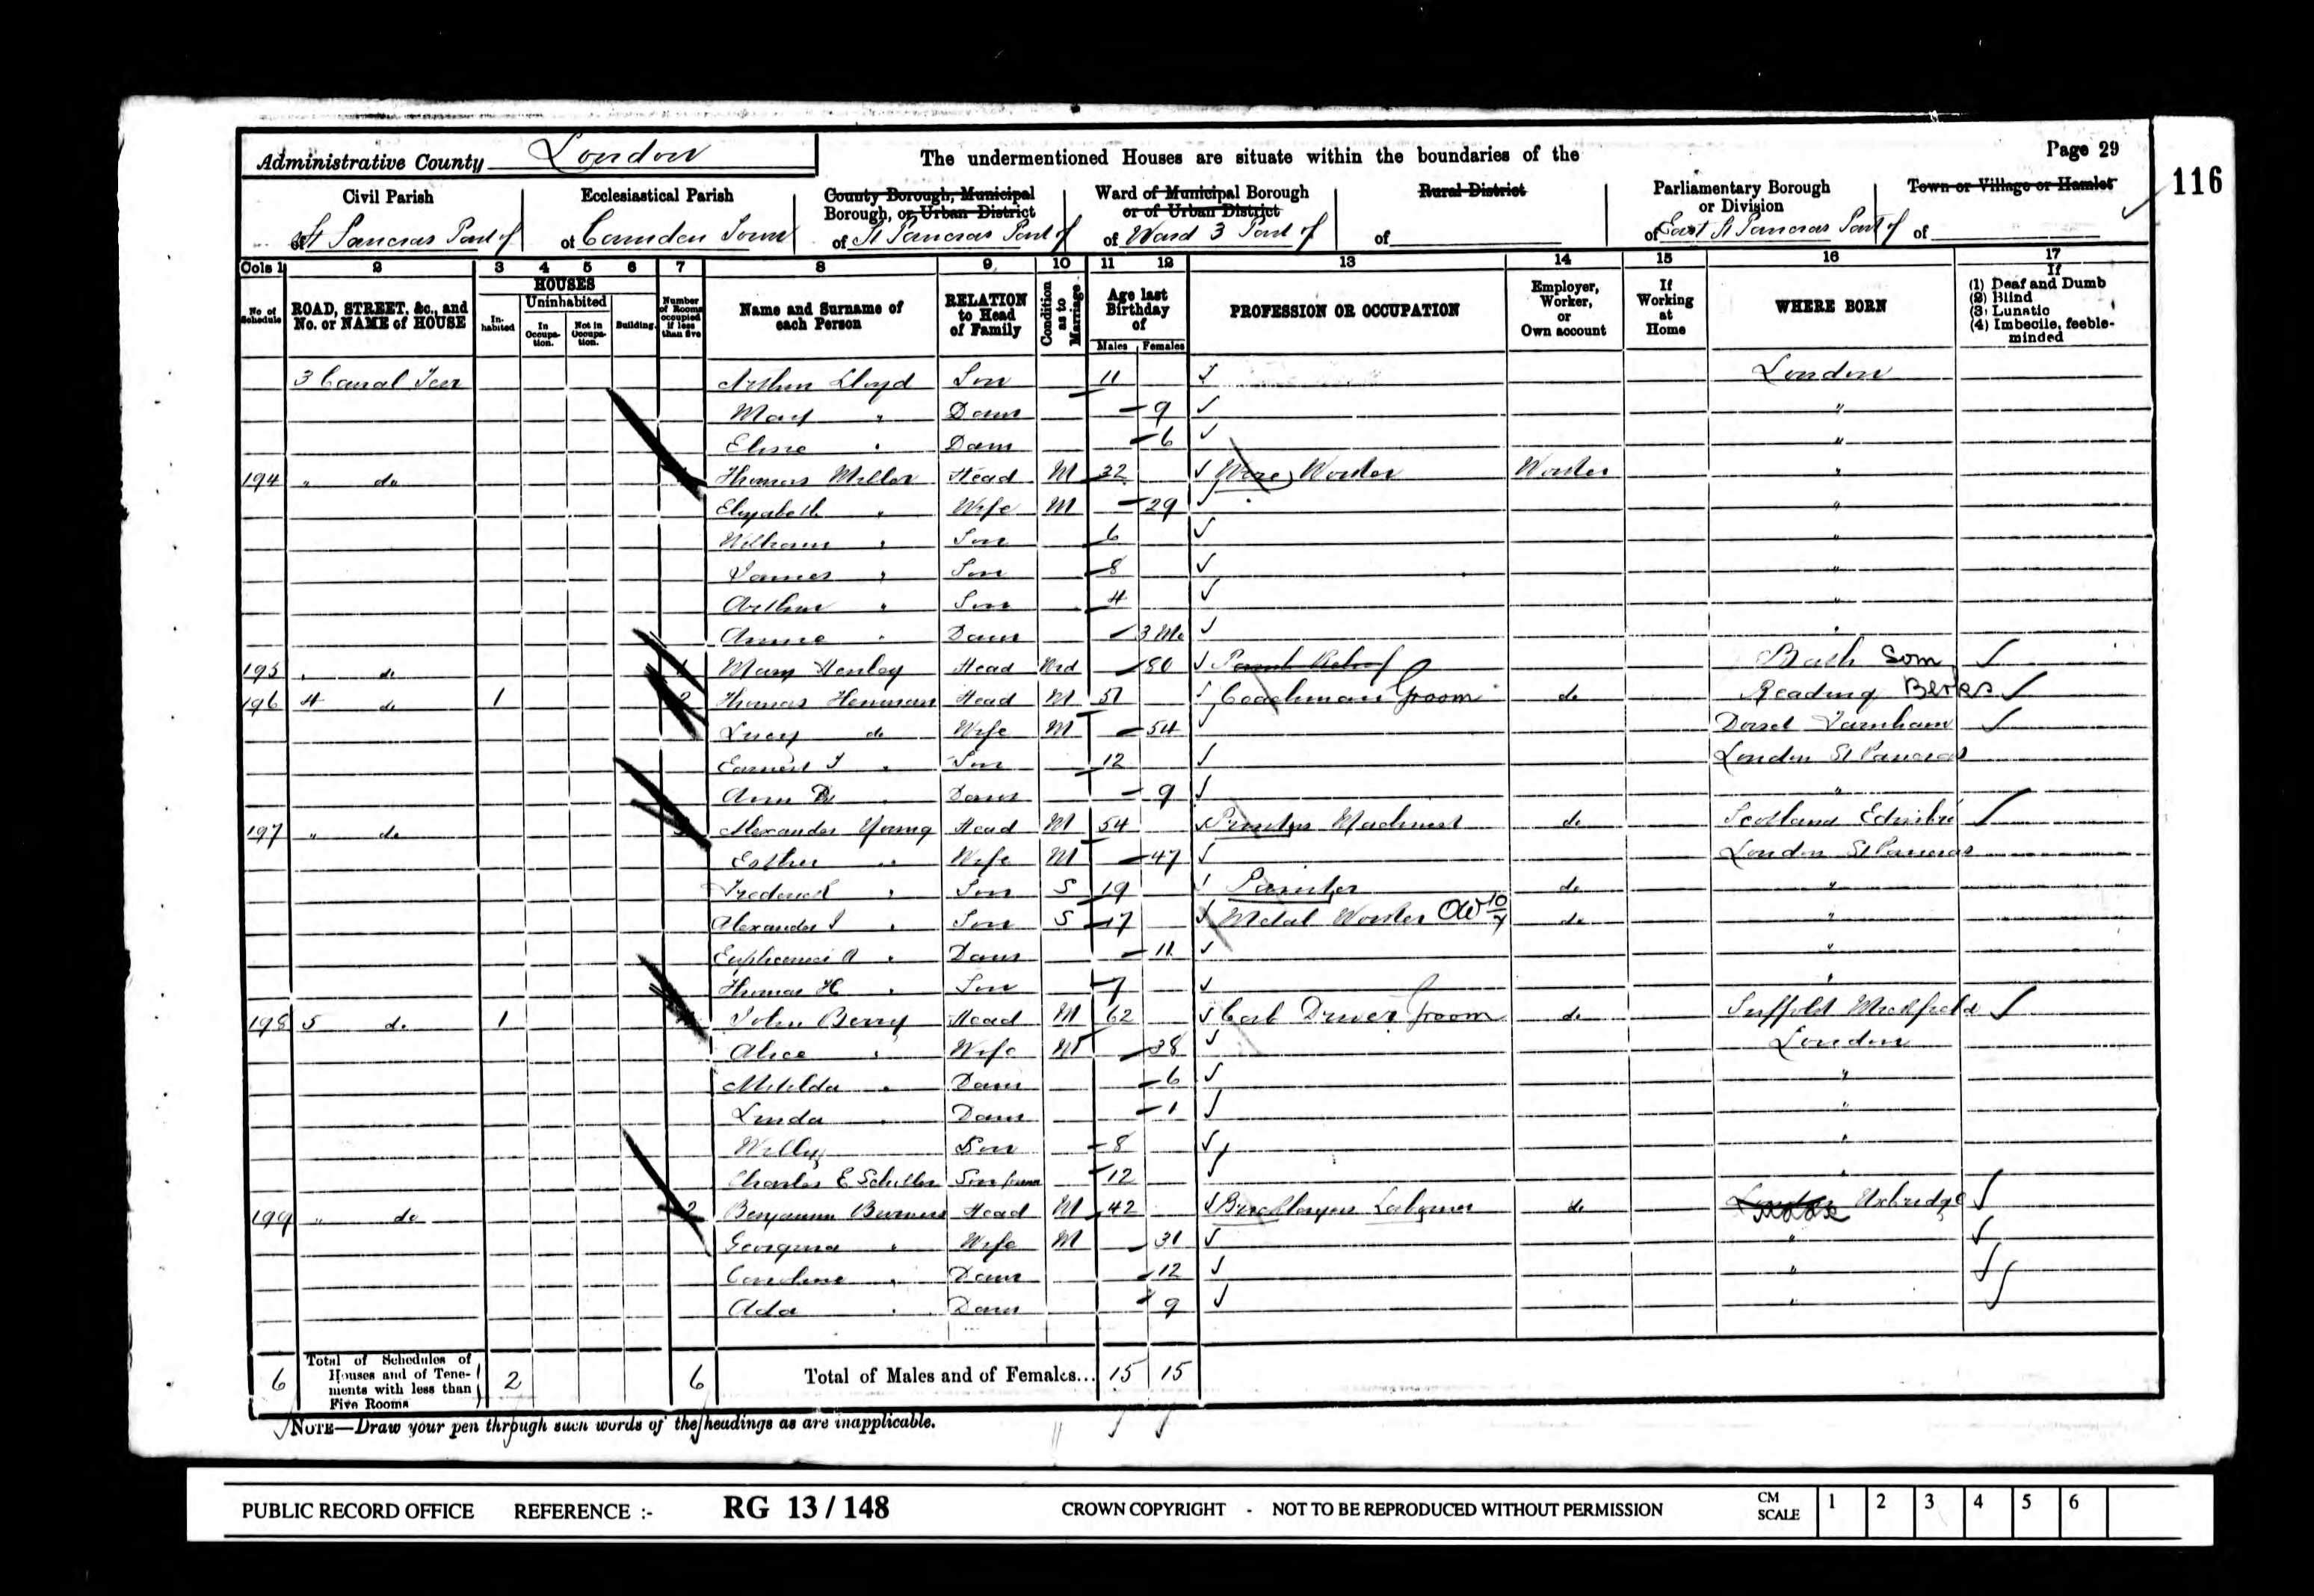 Administrative County London
The undermentioned Houses are situate within the boundaries of the
Page 29
116
Civil Parish
Ecclesiastical Parish
County Borough, Municipal Borough, or Urban District
Ward of Municipal Borough or of Urban District
Rural District
Parliamentary Borough or Division
Town or Village or Hamlet
of St Pancras Part of
of Camden Town
of St Pancras Part of
of Ward 3 Part of
of
of East St Pancras Part of
of
Cols 1 2 3 4 5 6 7 8 9 10 11 12 13 14 15 16 17
No of Schedule
ROAD, STREET, &c., and No. or NAME of HOUSE
HOUSES
In-habited
Uninhabited
In Occupa-tion.
Not in Occupa-tion.
Building.
Number of Rooms occupied if less than five
Name and Surname of each Person
RELATION to Head of Family
Condition as to Marriage
Age last Birthday of
Males Females
PROFESSION OR OCCUPATION
Employer, Worker, or Own account
If Working at Home
WHERE BORN
If
(1) Deaf and Dumb
(2) Blind
(3) Lunatic
(4) Imbecile, feeble-minded
3 Canal Terr Arthur Lloyd Son 11 London
May " Daur 9 "
" Daur 6 "
194 " do Thomas Miller Head M 32 Wire Worker Worker "
Elizabeth " Wife M 29 "
William " Son 6 "
James " Son 8 "
Arthur " Son 4 "
Annie " Daur 3 Mo "
195 " do 1 Mary Henley Head Wid 80 Bath Som
196 4 do 1 2 Thomas Head M 51 Coachman Groom do Reading Berks
Lucy do Wife M 54 Dorset
Earnest " Son 12 London St Pancras
Ann " Daur 9 "
197 " do Alexander Young Head M 54 Printers Machinist do Scotland
Esther " Wife M 47 London St Pancras
Frederick " Son S 19 do "
Alexander J " Son S 17 Metal Worker OW 10/7 do "
Euphemia A " Daur 11 "
Thomas H " Son 7 "
198 5 do 1 John Berry Head M 62 Cab Driver Groom do Suffolk
Alice " Wife M 38 London
Matilda " Daur 6 "
Linda " Daur 1 "
Willy Son 8 "
Charles E Son 12 "
199 " do 2 Benjamin Head M 42 Bricklayers Labourer do London Uxbridge
Georgina " Wife M 31 "
Caroline " Daur 12 "
Ada " Daur 9 "
6 Total of Schedules of Houses and of Tene-ments with less than Five Rooms 2 6 Total of Males and of Females... 15 15
NOTE—Draw your pen through such words of the headings as are inapplicable.
PUBLIC RECORD OFFICE REFERENCE :- RG 13 / 148 CROWN COPYRIGHT - NOT TO BE REPRODUCED WITHOUT PERMISSION CM SCALE 1 2 3 4 5 6